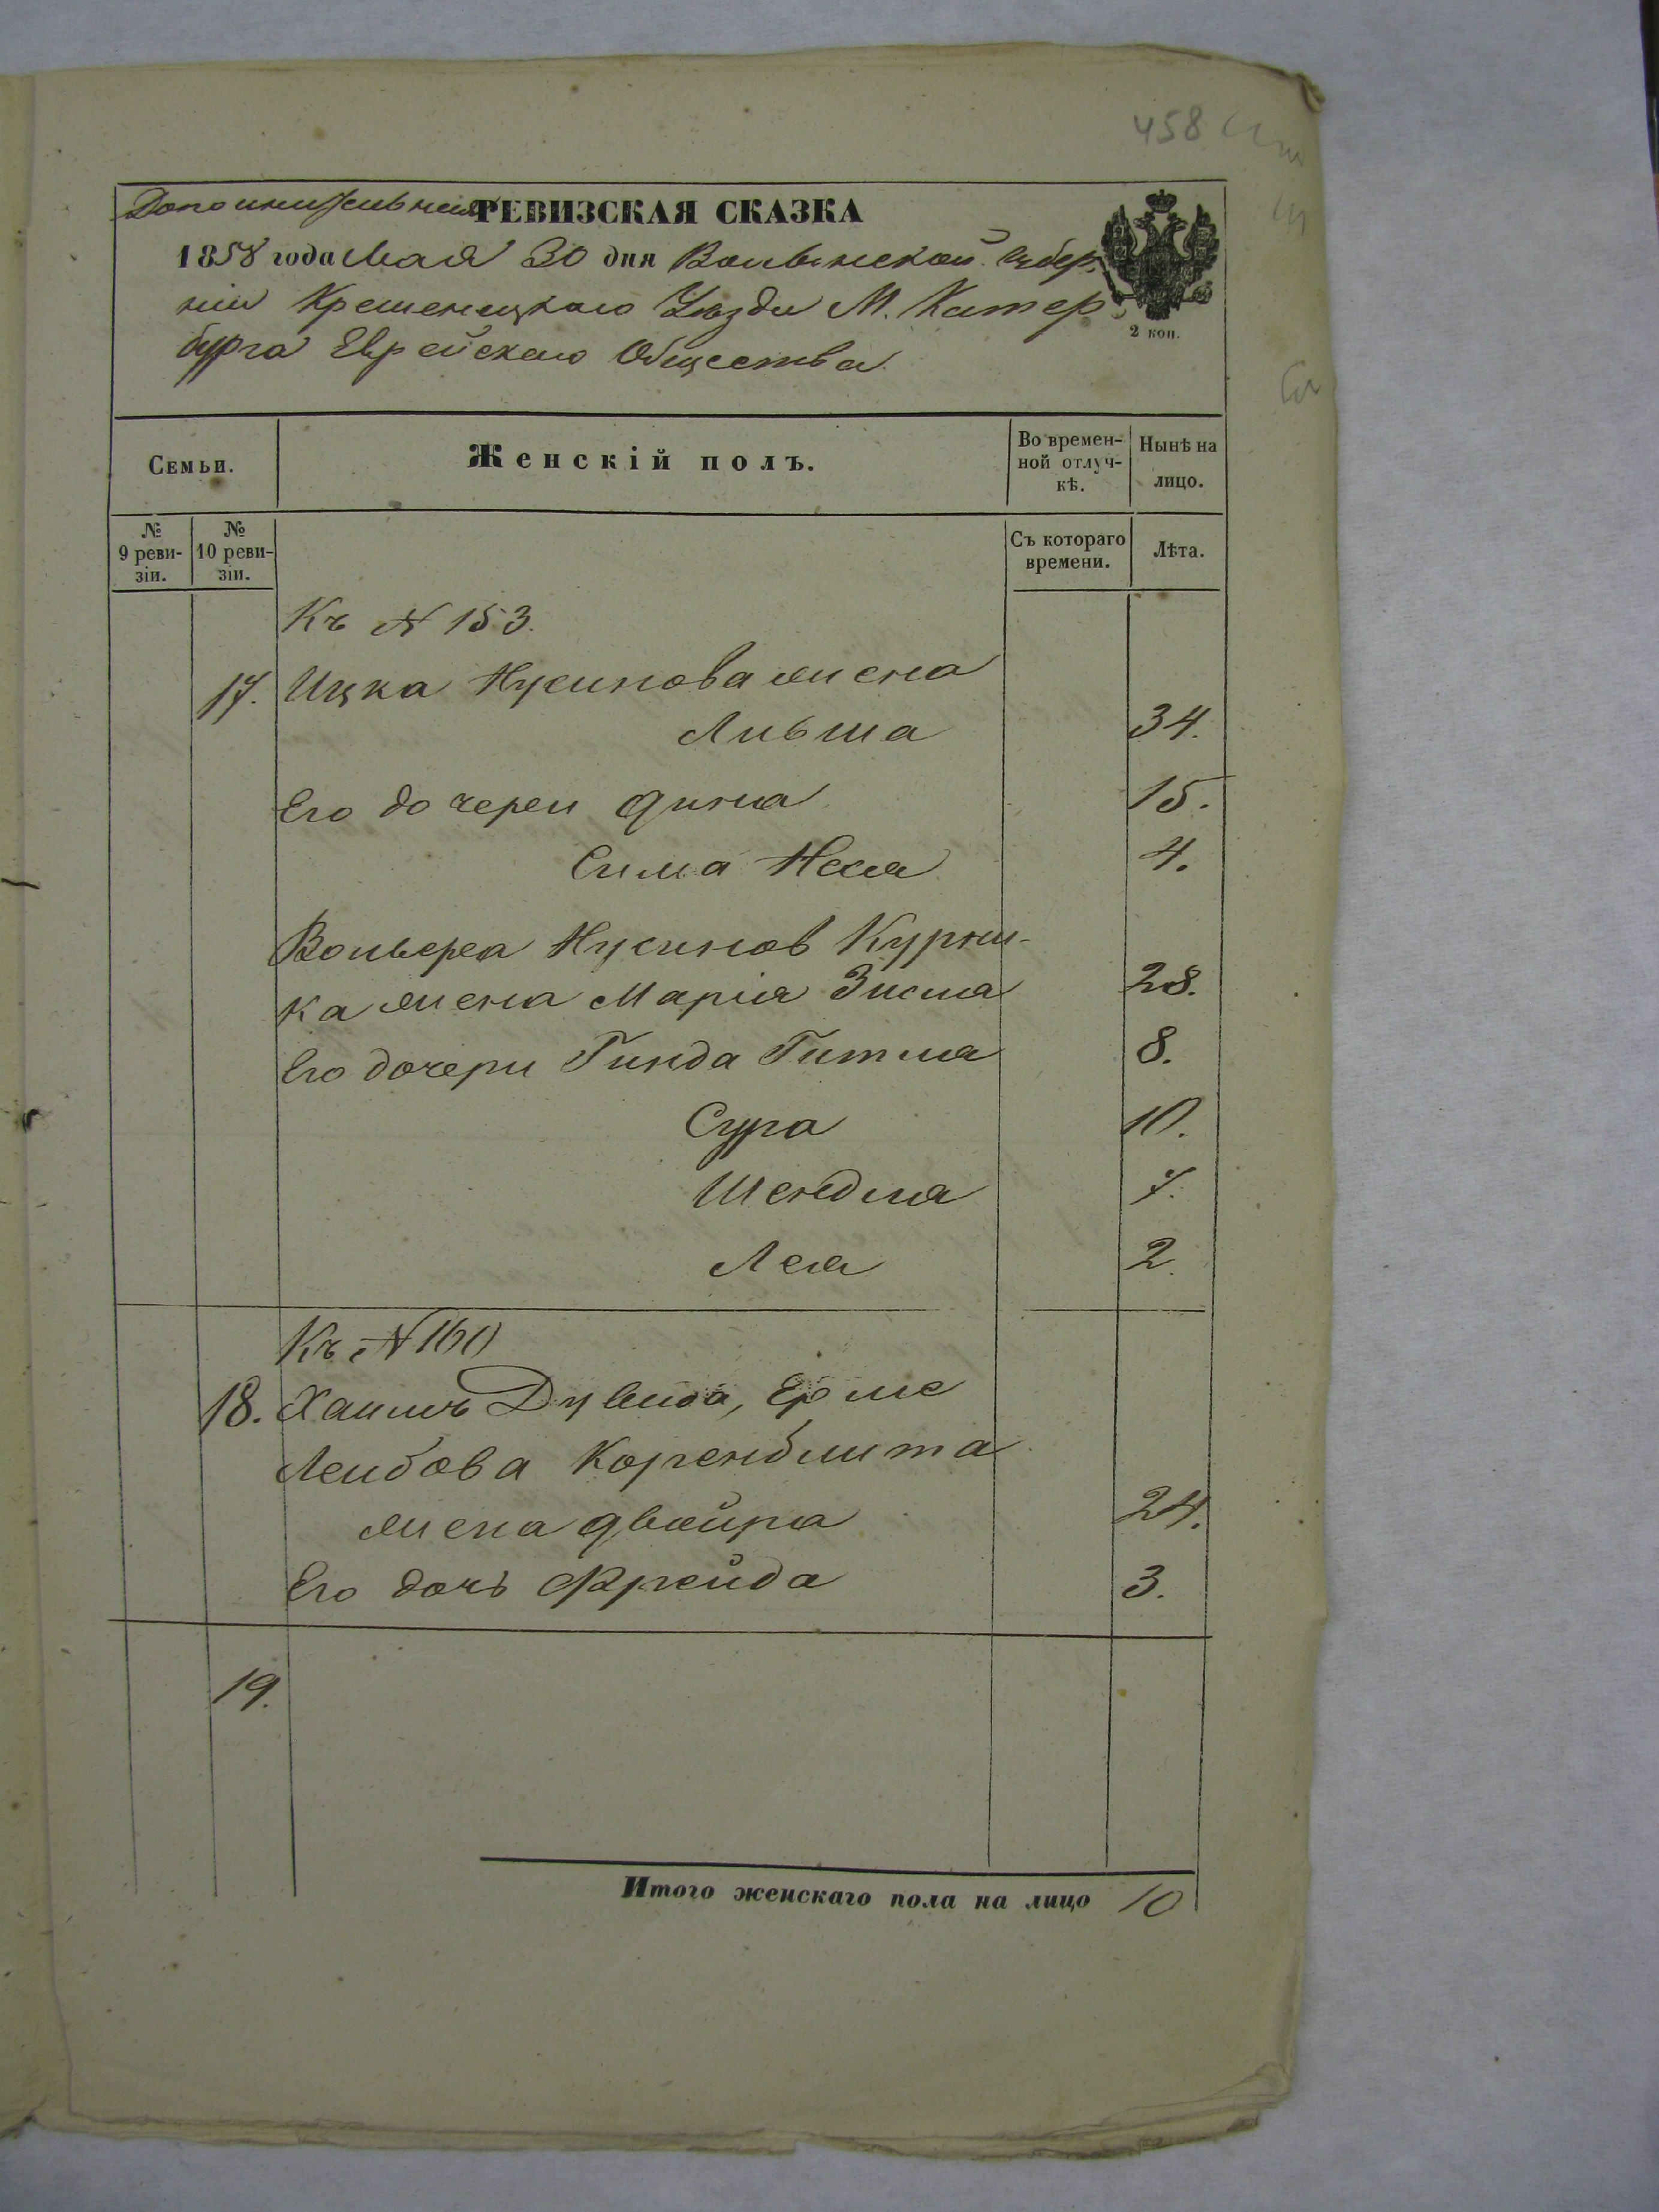 458
Дополнительная РЕВИЗСКАЯ СКАЗКА
1858 года Мая 30 дня Волынской Губер
ніи Кременецкаго Уѣзда М. Катер
бурга Еврейскаго Общества
2 коп.
Семьи.
Женскій полъ.
Во времен-
ной отлуч-
кѣ.
Нынѣ на
лицо.
№
9 реви-
зіи.
№
10 реви-
зіи.
Съ котораго
времени.
Лѣта.
Къ № 153.
17. Ицка Нусинова жена
Ливша 34.
Его дочереи Дина 15.
Сима Неся 4.
Вольфа Нусинов Курни-
ка жена Марія Зисля 28.
Его дочери Гинда Гитля 8.
Сура 10.
Шендля 7.
Лея 2.
Къ № 160
18. Хаимъ Дувида, Ерше
Леибова Коренблита
жена Двойра 24.
Его дочь Фрейда 3.
19.
Итого женскаго пола на лицо 10